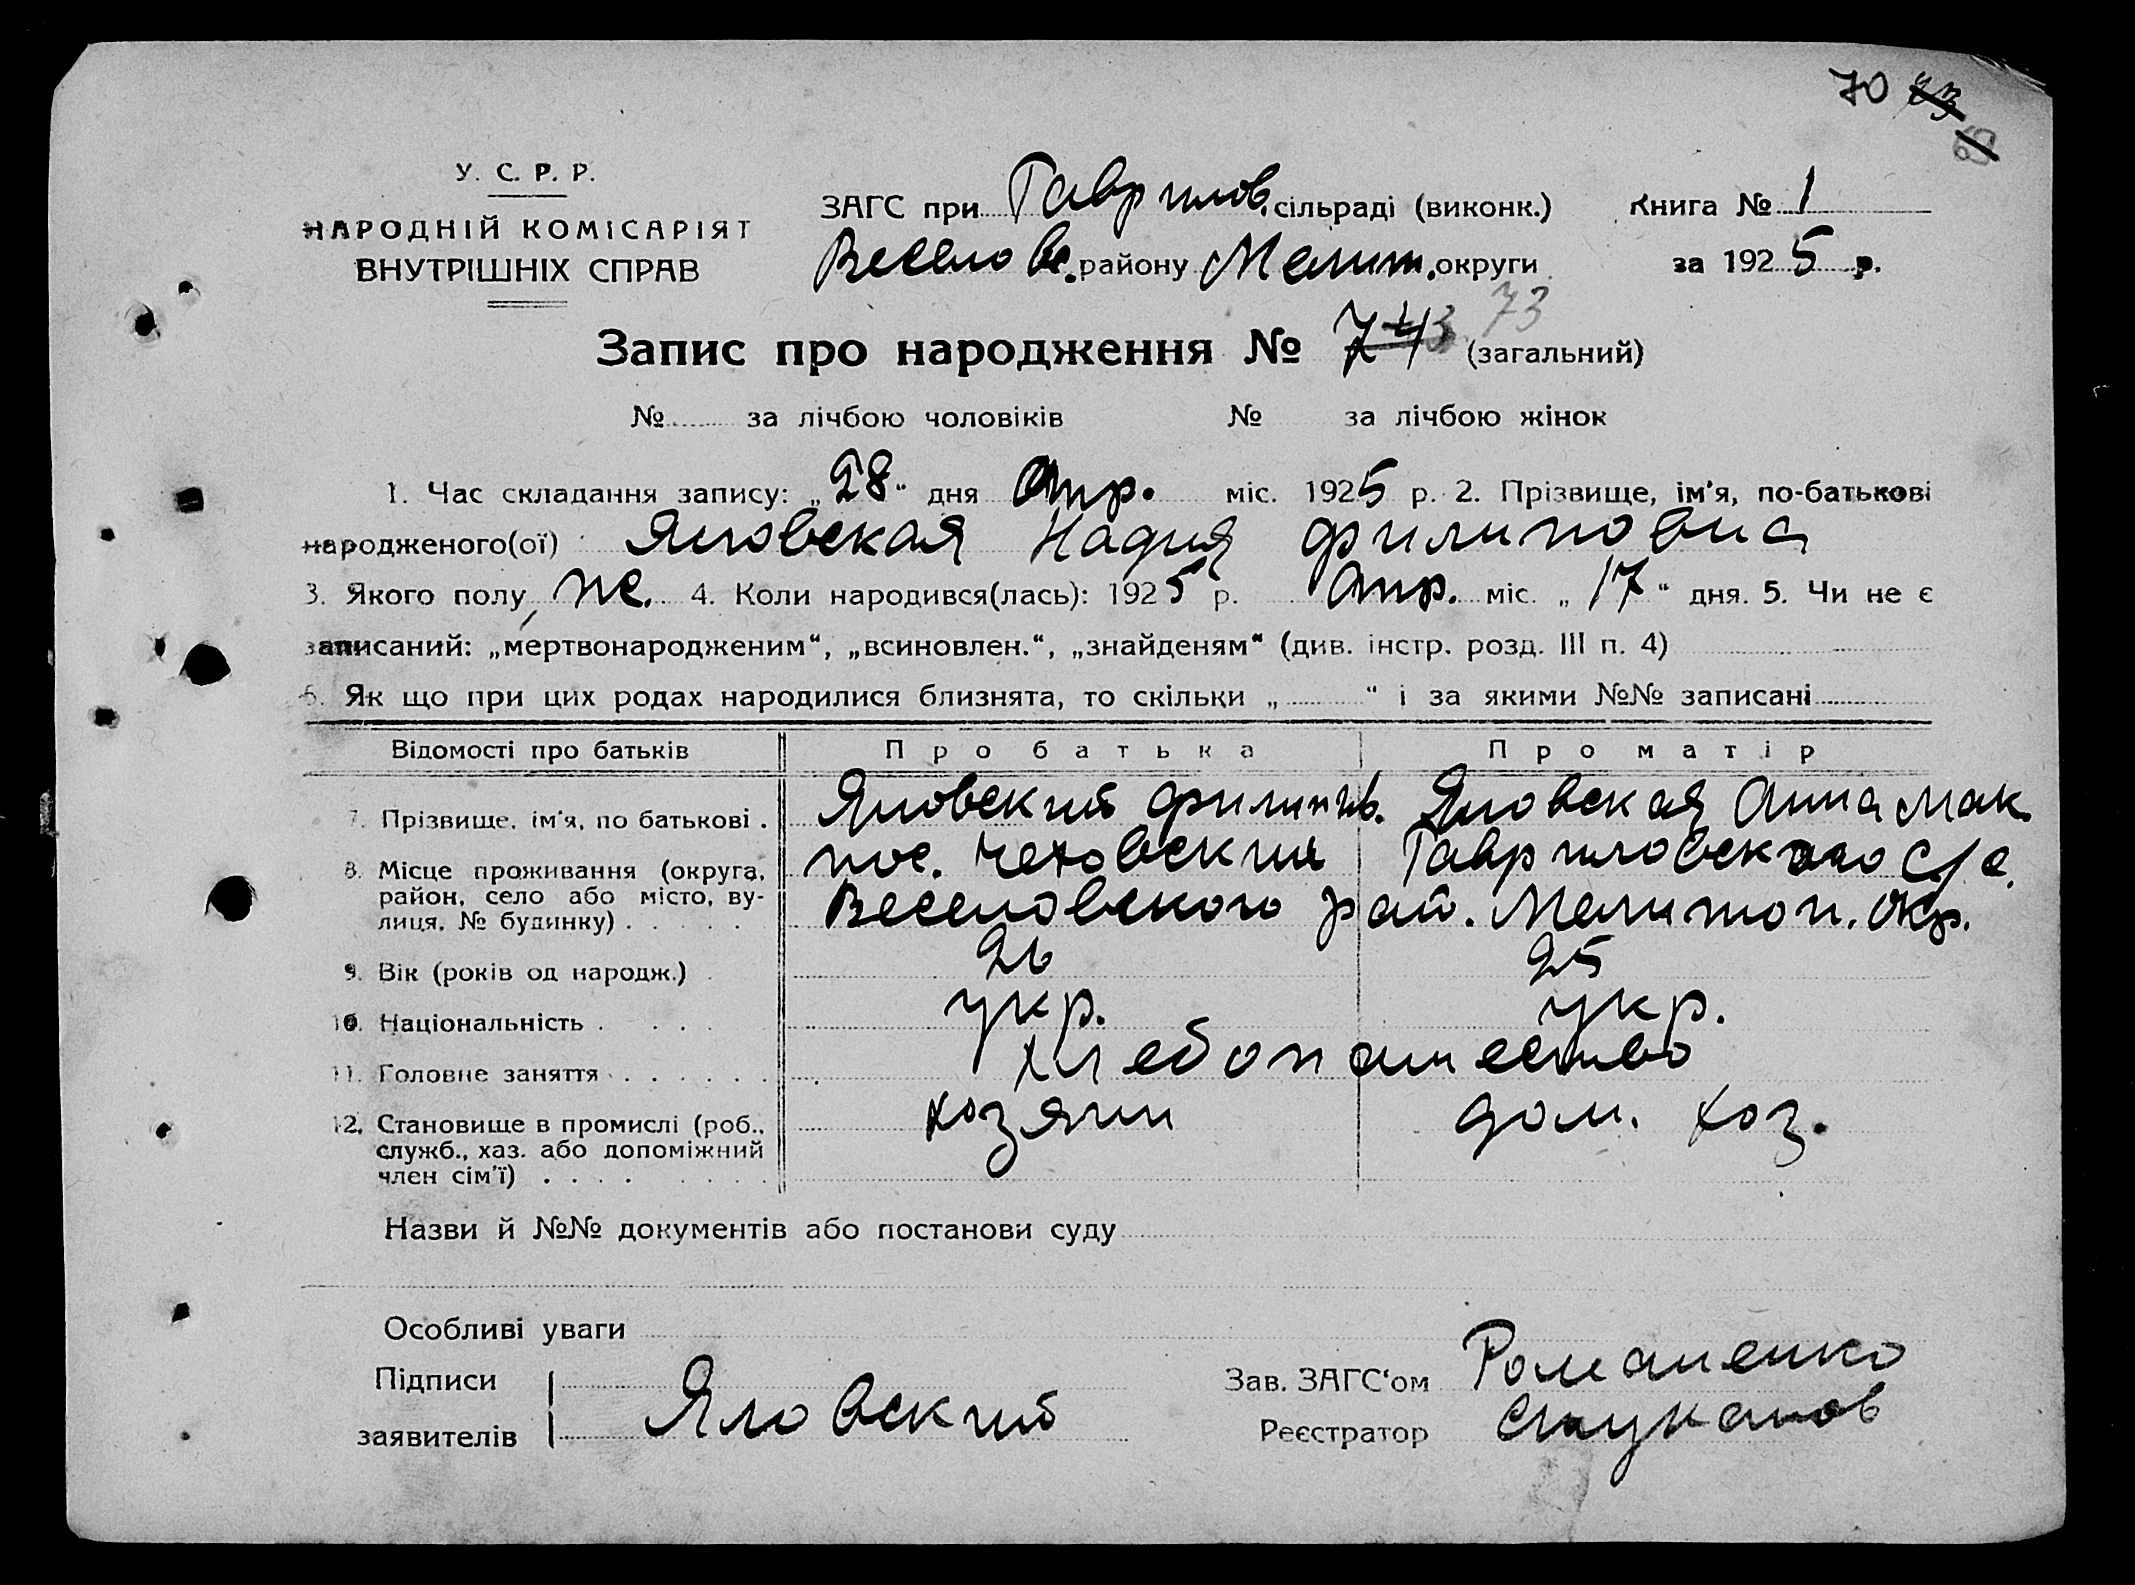 70 73
У. С. Р. Р.
НАРОДНІЙ КОМІСАРІЯТ
ВНУТРІШНІХ СПРАВ
ЗАГС при Гаврилов. сільраді (виконк.) Книга № 1
Веселовс. району Мелит. округи за 1925 р.
73
Запис про народження № 743 (загальний)
№ за лічбою чоловіків № за лічбою жінок
1. Час складання запису: „28“ дня Апр. міс. 1925 р. 2. Прізвище, ім'я, по-батькові
народженого(ої) Яловская Надия Филиповна
3. Якого полу же. 4. Коли народився(лась): 1925 р. Апр. міс. „17“ дня. 5. Чи не є
записаний: „мертвонародженим“, „всиновлен.“, „знайденям“ (див. інстр. розд. III п. 4)
6. Як що при цих родах народилися близнята, то скільки „ “ і за якими №№ записані
Відомості про батьків Про батька Про матір
7. Прізвище, ім'я, по батькові . Яловский Филип Ив. Яловская Анна Мак.
8. Місце проживання (округа, район, село або місто, вулиця, № будинку) . . . . . пос. Чеховский Гавриловского С/с.
Веселовского рай. Мелитоп. Окр.
9. Вік (років од народж.) . 26 25
10. Національність . . . . укр. укр.
11. Головне заняття . . . . . . хлебопашество
12. Становище в промислі (роб., служб., хаз. або допоміжний член сім'ї) . . . . хозяин дом. хоз.
Назви й №№ документів або постанови суду
Особливі уваги
Підписи
заявителів Яловский
Зав. ЗАГС'ом Романенко
Реєстратор